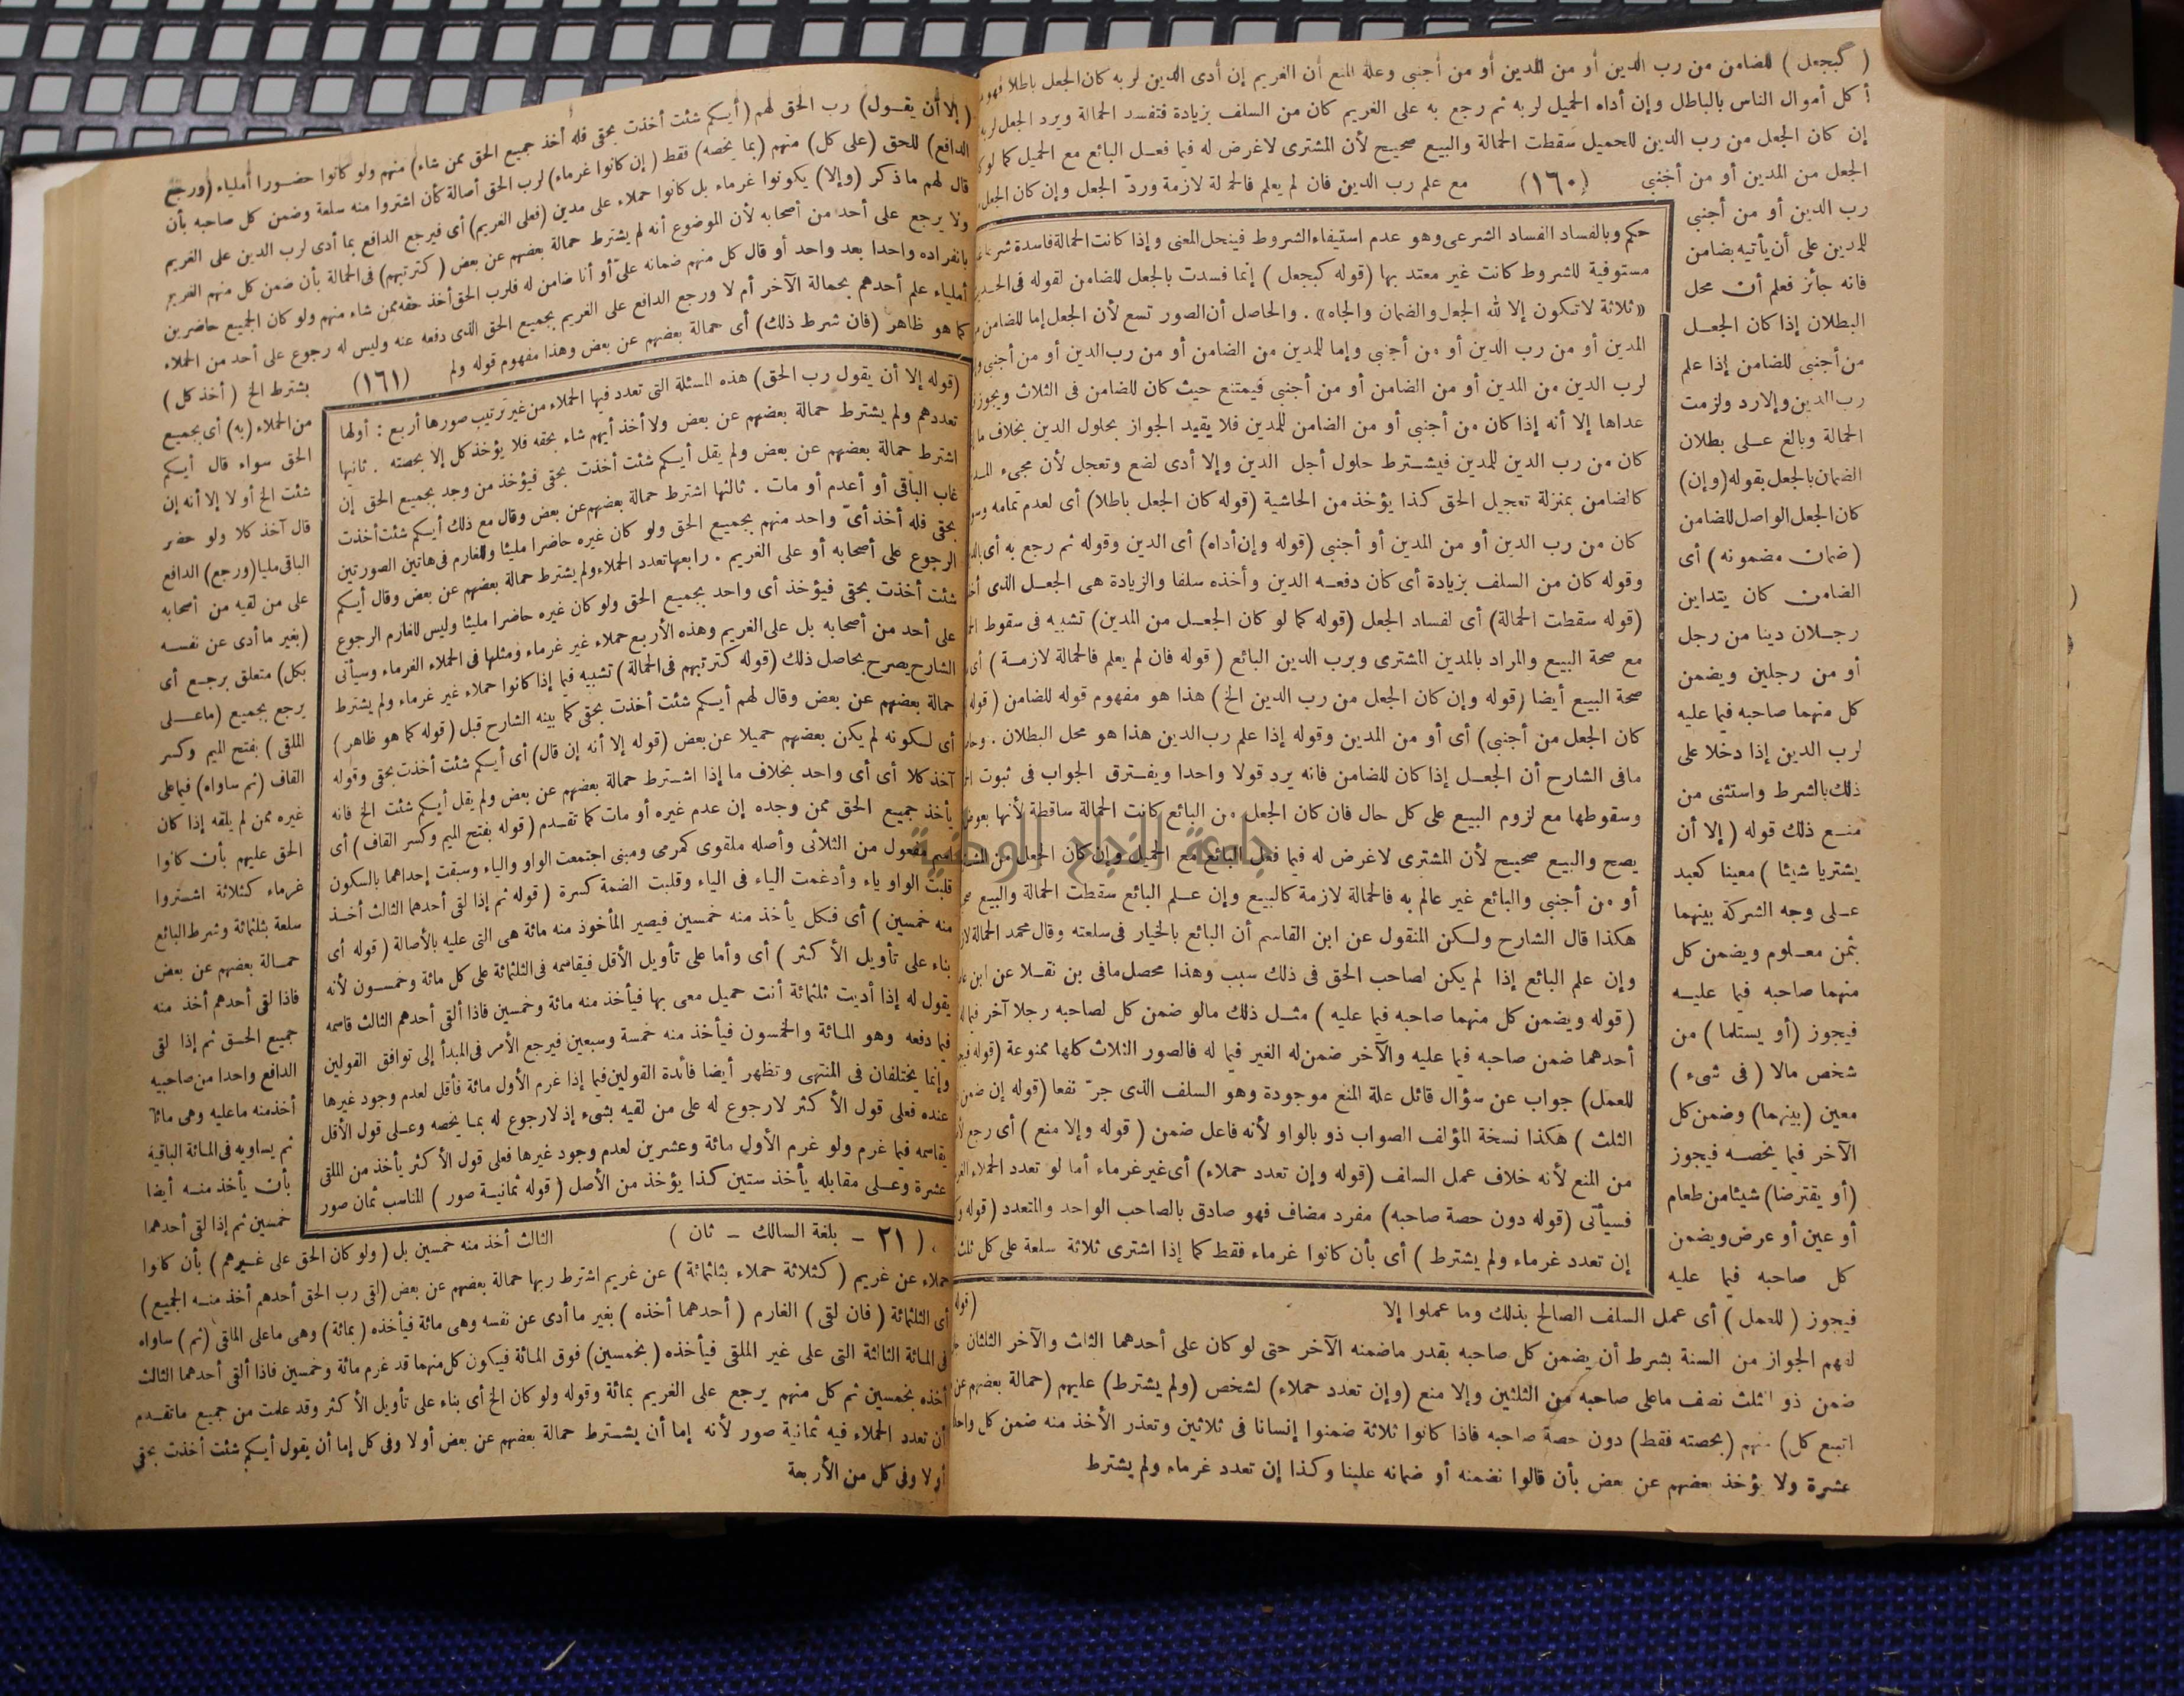 ( كبجعل ) للضامن من رب الدين أو من المدين أو من أجنبى وعلة المنع أن الغريم إن أدى الدين لربه كان الجعل باطلا فهو
أكل أموال الناس بالباطل وإن أداه الحميل لربه ثم رجع به على الغريم كان من السلف بزيادة فتفسد الحمالة ويرد الجعل لربه
إن كان الجعل من رب الدين للحميل سقطت الحمالة والبيع صحيح لأن المشترى لاغرض له فيما فعل البائع مع الحميل كما لو
الجعل من المدين أو من أجنبى
(١٦٠)
مع علم رب الدين فان لم يعلم فالحمالة لازمة وردّ الجعل وإن كان الجعل
رب الدين أو من أجنبى
للمدين على أن يأتيه بضامن
فانه جائز فعلم أن محل
البطلان إذا كان الجعل
من أجنبى للضامن إذا علم
رب الدين وإلا رد ولزمت
الحمالة وبالغ على بطلان
الضمان بالجعل بقوله (وإن)
كان الجعل الواصل للضامن
(ضمان مضمونه ) أى
الضامن كان يتداين
رجلان دينا من رجل
أو من رجلين ويضمن
كل منهما صاحبه فيما عليه
لرب الدين إذا دخلا على
ذلك بالشرط واستثنى من
منع ذلك قوله ( إلا أن
يشتريا شيئا ) معينا كعبد
على وجه الشركة بينهما
بثمن معلوم ويضمن كل
منهما صاحبه فيما عليه
فيجوز (أو يستلما ) من
شخص مالا ( فى شىء )
معين (بينهما) وضمن كل
الآخر فيما يخصه فيجوز
(أو يقترضا) شيئا من طعام
أو عين أو عرض ويضمن
كل صاحبه فيما عليه
حكم وبالفساد الفساد الشرعى وهو عدم استيفاء الشروط فينحل المعنى وإذا كانت الحمالة فاسدة شرعا
مستوفية للشروط كانت غير معتد بها (قوله كبجعل ) إنما فسدت بالجعل للضامن لقوله فى
«ثلاثة لاتكون إلا لله الجعل والضمان والجاه» . والحاصل أن الصور تسع لأن الجعل إما للضامن
المدين أو من رب الدين أو من أجنبى وإما للمدين من الضامن أو من رب الدين أو من أجنبى
لرب الدين من المدين أو من الضامن أو من أجنبى فيمتنع حيث كان للضامن فى الثلاث ويجوز
عداها إلا أنه إذا كان من أجنبى أو من الضامن للمدين فلا يقيد الجواز بحلول الدين بخلاف ما
كان من رب الدين للمدين فيشترط حلول أجل الدين وإلا أدى لضع وتعجل لأن مجىء
كالضامن بمنزلة تعجيل الحق كذا يؤخذ من الحاشية (قوله كان الجعل باطلا) أى لعدم تمامه
كان من رب الدين أو من المدين أو أجنبى (قوله وإن أداه) أى الدين وقوله ثم رجع به أى
وقوله كان من السلف بزيادة أى كأن دفعه الدين وأخذه سلفا والزيادة هى الجعل الذى
(قوله سقطت الحمالة) أى لفساد الجعل (قوله كما لو كان الجعل من المدين) تشبيه فى سقوط
مع صحة البيع والمراد بالمدين المشترى وبرب الدين البائع ( قوله فان لم يعلم فالحمالة لازمة ) أى
صحة البيع أيضا (قوله وإن كان الجعل من رب الدين الخ) هذا هو مفهوم قوله للضامن (قوله
كان الجعل من أجنبى) أى أو من المدين وقوله إذا علم رب الدين هذا هو محل البطلان .
مافى الشارح أن الجعل إذا كان للضامن فانه يرد قولا واحدا ويفترق الجواب فى ثبوت
وسقوطها مع لزوم البيع على كل حال فان كان الجعل من البائع كانت الحمالة ساقطة لأنها
يصح والبيع صحيح لأن المشترى لاغرض له فيما فعل البائع مع الحميل وإن كان الجعل من
أو من أجنبى والبائع غير عالم به فالحمالة لازمة كالبيع وإن علم البائع سقطت الحمالة والبيع
هكذا قال الشارح ولكن المنقول عن ابن القاسم أن البائع بالخيار فى سلعته وقال محمد الحمالة
وإن علم البائع إذا لم يكن لصاحب الحق فى ذلك سبب وهذا محصل مافى بن نقلا عن ابن
( قوله ويضمن كل منهما صاحبه فيما عليه ) مثل ذلك مالو ضمن كل لصاحبه رجلا آخر
أحدهما ضمن صاحبه فيما عليه والآخر ضمن له الغير فيما له فالصور الثلاث كلها ممنوعة (قوله
للعمل) جواب عن سؤال قائل علة المنع موجودة وهو السلف الذى جرّ نفعا (قوله إن ضمن
الثلث ) هكذا نسخة المؤلف الصواب ذو بالواو لأنه فاعل ضمن ( قوله وإلا منع ) أى رجع
من المنع لأنه خلاف عمل السلف (قوله وإن تعدد حملاء) أى غير غرماء أما لو تعدد الحملاء
فسيأتى (قوله دون حصة صاحبه) مفرد مضاف فهو صادق بالصاحب الواحد والمتعدد (قوله
إن تعدد غرماء ولم يشترط ) أى بأن كانوا غرماء فقط كما إذا اشترى ثلاثة سلعة على كل ثلث
(قوله
فيجوز ( للعمل ) أى عمل السلف الصالح بذلك وما عملوا إلا
لفهم الجواز من السنة بشرط أن يضمن كل صاحبه بقدر ماضمنه الآخر حتى لو كان على أحدهما الثلث والآخر الثلثان
ضمن ذو الثلث نصف ماعلى صاحبه من الثلثين وإلا منع (وإن تعدد حملاء) لشخص (ولم يشترط) عليهم (حمالة بعضهم عن
اتبع كل) منهم (بحصته فقط) دون حصة صاحبه فاذا كانوا ثلاثة ضمنوا إنسانا فى ثلاثين وتعذر الأخذ منه ضمن كل واحد
عشرة ولا يؤخذ بعضهم عن بعض بأن قالوا نضمنه أو ضمانه علينا وكذا إن تعدد غرماء ولم يشترط
( إلا أن يقول) رب الحق لهم (أيكم شئت أخذت بحقى فله أخذ جميع الحق ممن شاء) منهم ولو كانوا حضورا أملياء (ورجع
الدافع) للحق (على كل) منهم (بما يخصه) فقط (إن كانوا غرماء) لرب الحق أصالة كأن اشتروا منه سلعة وضمن كل صاحبه بأن
قال لهم ما ذكر (وإلا) يكونوا غرماء بل كانوا حملاء على مدين (فعلى الغريم) أى فيرجع الدافع بما أدى لرب الدين على الغريم
ولا يرجع على أحد من أصحابه لأن الموضوع أنه لم يشترط حمالة بعضهم عن بعض ( كترتبهم) فى الحمالة بأن ضمن كل منهم الغريم
بانفراده واحدا بعد واحد أو قال كل منهم ضمانه علىّ أو أنا ضامن له فلرب الحق أخذ حقه ممن شاء منهم ولو كان الجميع حاضرين
أملياء علم أحدهم بحمالة الآخر أم لا ورجع الدافع على الغريم بجميع الحق الذى دفعه عنه وليس له رجوع على أحد من الحملاء
كما هو ظاهر (فان شرط ذلك) أى حمالة بعضهم عن بعض وهذا مفهوم قوله ولم
(١٦١)
يشترط الخ ( أخذ كل )
من الحملاء (به) أى بجميع
الحق سواء قال أيكم
شئت الخ أو لا إلا أنه إن
قال آخذ كلا ولو حضر
الباقى مليا (ورجع) الدافع
على من لقيه من أصحابه
(بغير ما أدى عن نفسه
بكل) متعلق برجع أى
يرجع بجميع (ماعلى
الملقى ) بفتح الميم وكسر
القاف (ثم ساواه) فيما على
غيره ممن لم يلقه إذا كان
الحق عليهم بأن كانوا
غرماء كثلاثة اشتروا
سلعة بثلثمائة وشرط البائع
حمالة بعضهم عن بعض
فاذا لقى أحدهم أخذ منه
جميع الحق ثم إذا لقى
الدافع واحدا من صاحبيه
أخذ منه ماعليه وهى مائة
ثم يساويه فى المائة الباقية
بأن يأخذ منه أيضا
خمسين ثم إذا لقى أحدهما
(قوله إلا أن يقول رب الحق) هذه المسئلة التى تعدد فيها الحملاء من غير ترتيب صورها أربع : أولها
تعددهم ولم يشترط حمالة بعضهم عن بعض ولا أخذ أيهم شاء بحقه فلا يؤخذ كل إلا بحصته . ثانيها
اشترط حمالة بعضهم عن بعض ولم يقل أيكم شئت أخذت بحقى فيؤخذ من وجد بجميع الحق إن
غاب الباقى أو أعدم أو مات . ثالثها اشترط حمالة بعضهم عن بعض وقال مع ذلك أيكم شئت أخذت
بحقى فله أخذ أىّ واحد منهم بجميع الحق ولو كان غيره حاضرا مليئا وللغارم فى هاتين الصورتين
الرجوع على أصحابه أو على الغريم . رابعها تعدد الحملاء ولم يشترط حمالة بعضهم عن بعض وقال أيكم
شئت أخذت بحقى فيؤخذ أى واحد بجميع الحق ولو كان غيره حاضرا مليئا وليس للغارم الرجوع
على أحد من أصحابه بل على الغريم وهذه الأربع حملاء غير غرماء ومثلها فى الحملاء الغرماء وسيأتى
الشارح يصرح بحاصل ذلك (قوله كترتبهم فى الحمالة) تشبيه فيما إذا كانوا حملاء غير غرماء ولم يشترط
حمالة بعضهم عن بعض وقال لهم أيكم شئت أخذت بحقى كما بينه الشارح قبل (قوله كما هو ظاهر)
أى لكونه لم يكن بعضهم حميلا عن بعض (قوله إلا أنه إن قال) أى أيكم شئت أخذت بحقى وقوله
آخذ كلا أى أى واحد بخلاف ما إذا اشترط حمالة بعضهم عن بعض ولم يقل أيكم شئت الخ فانه
يأخذ جميع الحق ممن وجده إن عدم غيره أو مات كما تقدم (قوله بفتح الميم وكسر القاف) أى
اسم مفعول من الثلاثى وأصله ملقوى كمرمى ومبنى اجتمعت الواو والياء وسبقت إحداهما بالسكون
قلبت الواو ياء وأدغمت الياء فى الياء وقلبت الضمة كسرة ( قوله ثم إذا لقى أحدهما الثالث أخذ
منه خمسين ) أى فكل يأخذ منه خمسين فيصير المأخوذ منه مائة هى التى عليه بالأصالة ( قوله أى
بناء على تأويل الأكثر ) أى وأما على تأويل الأقل فيقاسمه فى الثلثمائة على كل مائة وخمسون لأنه
يقول له إذا أديت ثلثمائة أنت حميل معى بها فيأخذ منه مائة وخمسين فاذا ألقى أحدهم الثالث قاسمه
فيما دفعه وهو المائة والخمسون فيأخذ منه خمسة وسبعين فيرجع الأمر فى المبدأ إلى توافق القولين
وإنما يختلفان فى المنتهى وتظهر أيضا فائدة القولين فيما إذا غرم الأول مائة فأقل لعدم وجود غيرها
عنده فعلى قول الأكثر لارجوع له على من لقيه بشىء إذ لارجوع له بما يخصه وعلى قول الأقل
يقاسمه فيما غرم ولو غرم الأول مائة وعشرين لعدم وجود غيرها فعلى قول الأكثر يأخذ من الملقى
عشرة وعلى مقابله يأخذ ستين كذا يؤخذ من الأصل ( قوله ثمانية صور ) المناسب ثمان صور
( ٢١ - بلغة السالك - ثان )
الثالث أخذ منه خمسين بل ( ولو كان الحق على غيرهم ) بأن كانوا
حملاء عن غريم ( كثلاثة حملاء بثلثمائة ) عن غريم اشترط ربها حمالة بعضهم عن بعض (لقى رب الحق أحدهم أخذ منه الجميع )
أى الثلثمائة ( فان لقى ) الغارم ( أحدهما أخذه ) بغير ما أدى عن نفسه وهى مائة فيأخذه ( بمائة) وهى ماعلى الملقى (ثم ) ساواه
فى المائة الثالثة التى على غير الملقى فيأخذه ( بخمسين) فوق المائة فيكون كل منهما قد غرم مائة وخمسين فاذا ألقى أحدهما الثالث
أخذه بخمسين ثم كل منهم يرجع على الغريم بمائة وقوله ولو كان الخ أى بناء على تأويل الأكثر وقد علمت من جميع ماتقدم
أن تعدد الحملاء فيه ثمانية صور لأنه إما أن يشترط حمالة بعضهم عن بعض أولا وفى كل إما أن يقول أيكم شئت أخذت بحقى
أولا وفى كل من الأربعة
جامعة النجاح الوطنية